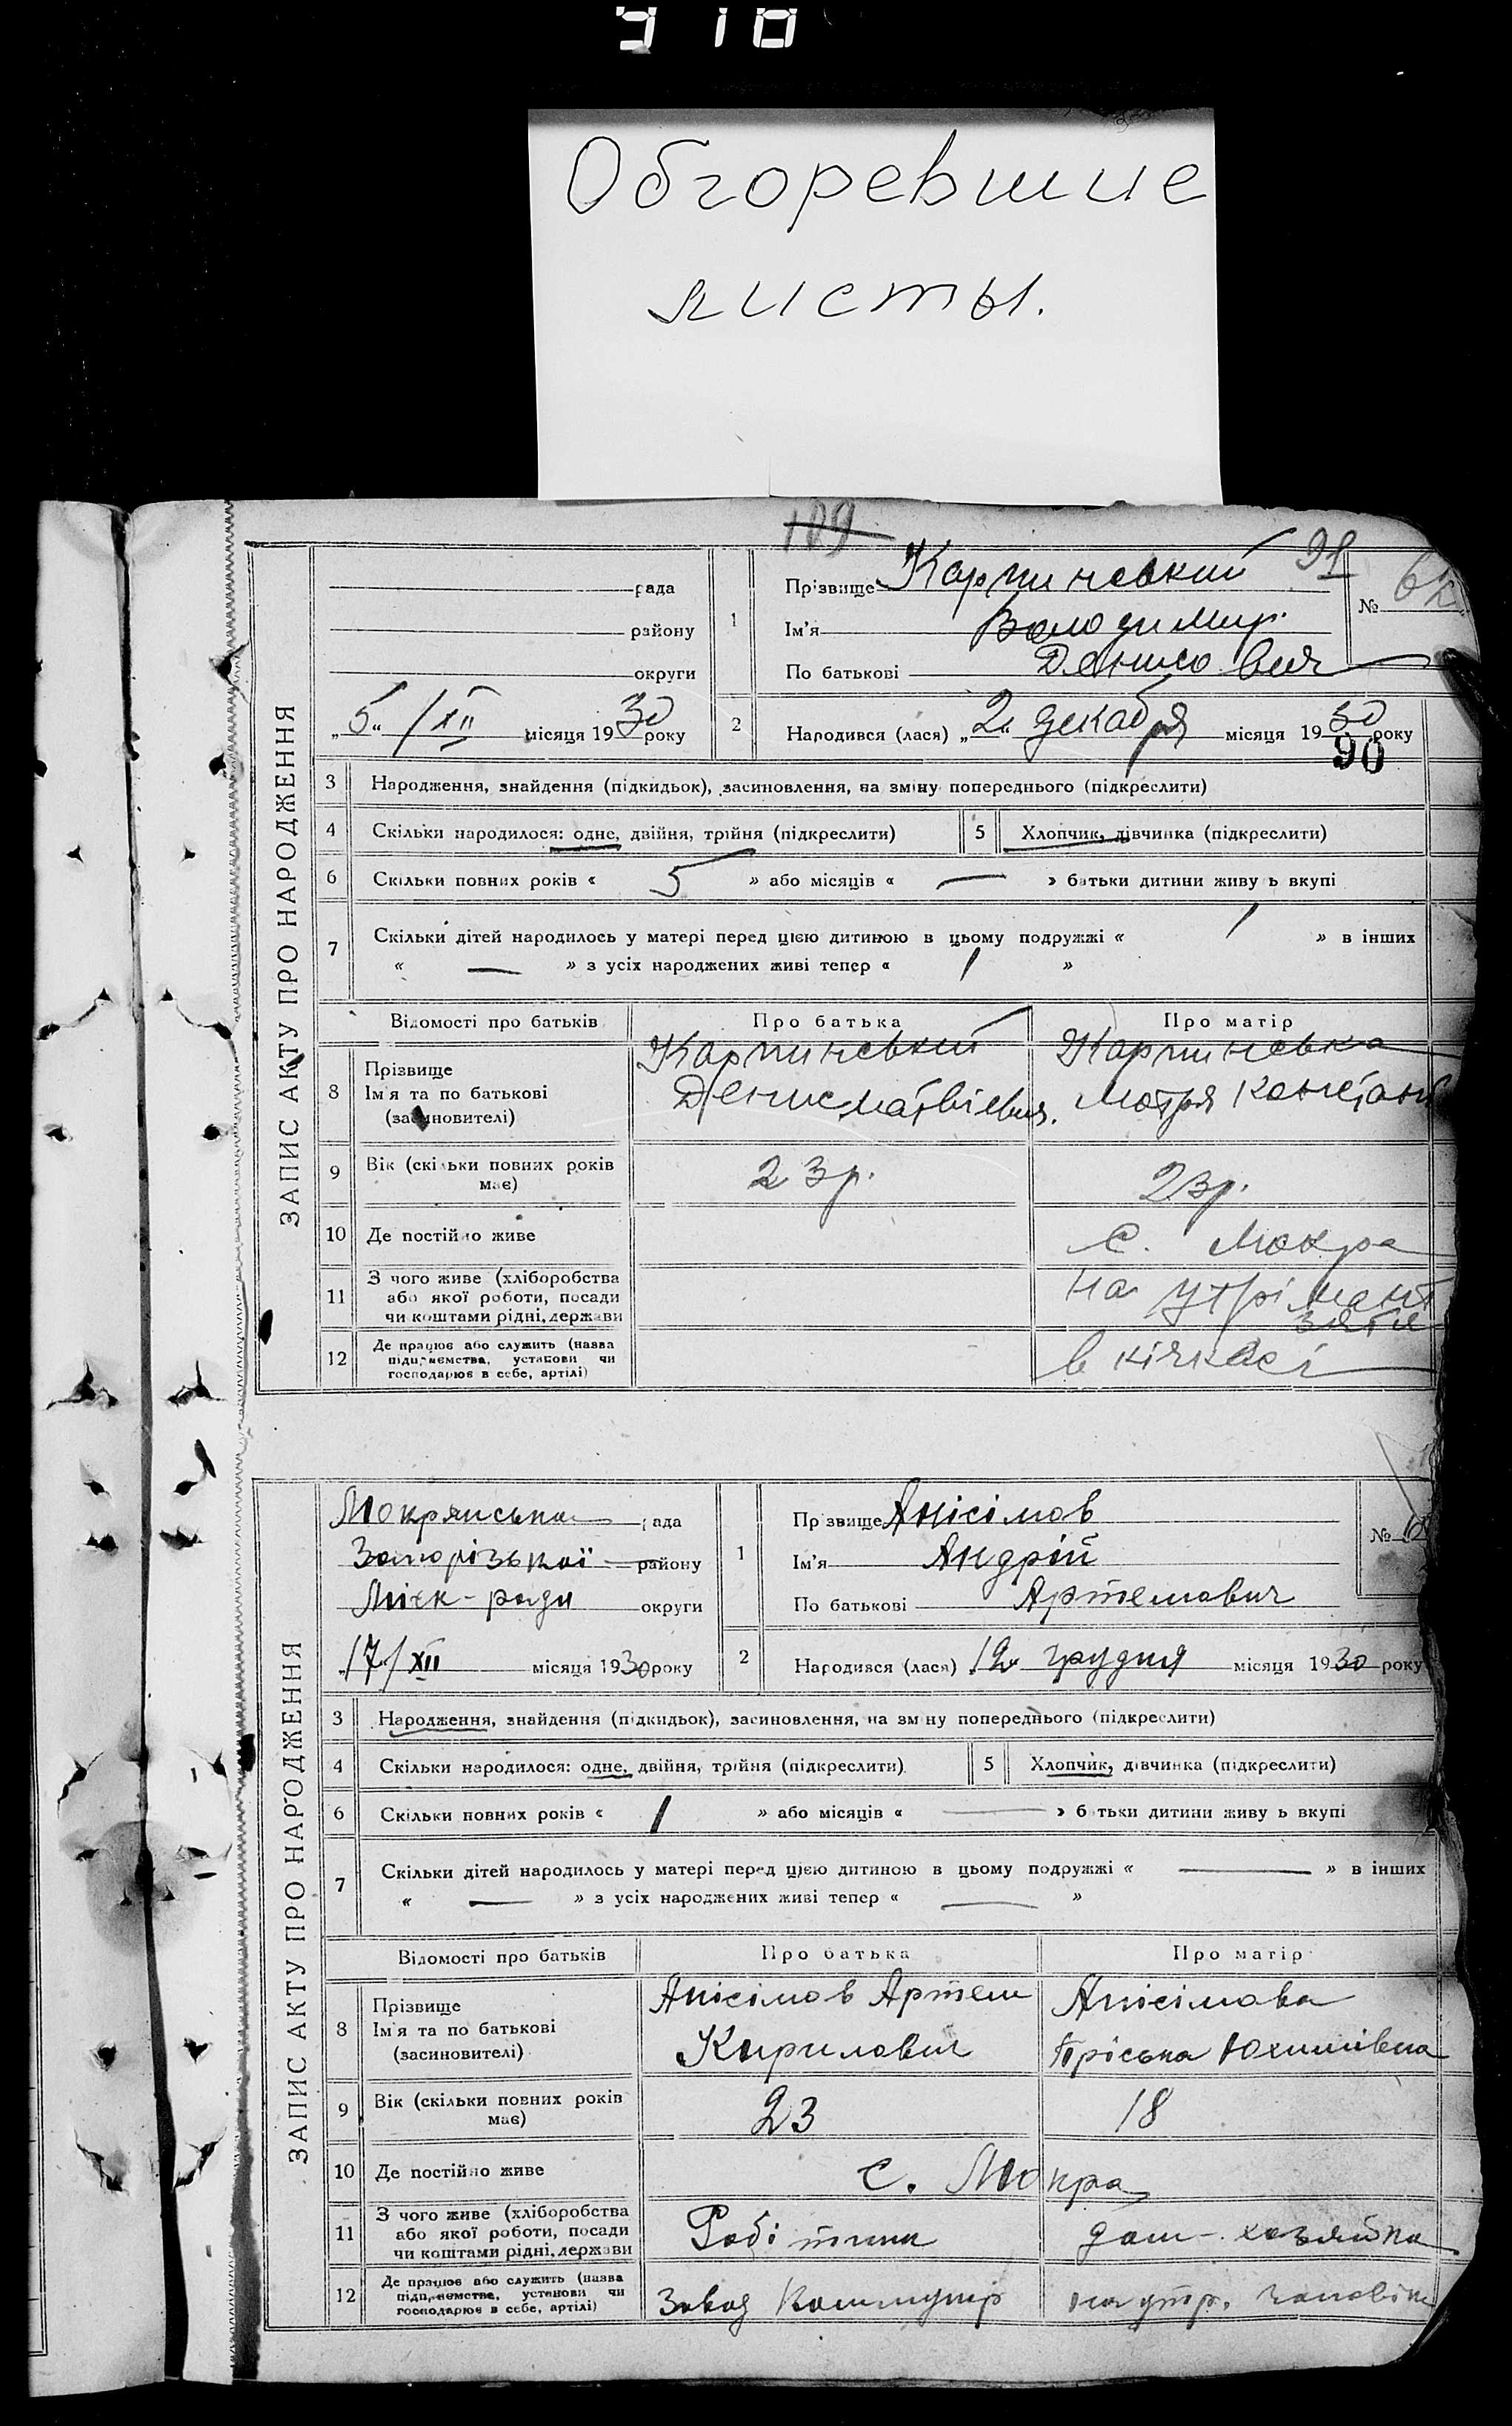 910
Обгоревшие
листы.
109
91
ЗАПИС АКТУ ПРО НАРОДЖЕННЯ
рада
району
округи
„5“ /XII місяця 1930 року
1
Прізвище Карпинський
Ім'я Володимир
По батькові Денисович
№ 62
2
Народився (лася) „2“ декабря місяця 1930 року
90
3 Народження, знайдення (підкидьок), засиновлення, на зміну попереднього (підкреслити)
4 Скільки народилося: одне, двійня, трійня (підкреслити)
5 Хлопчик, дівчинка (підкреслити)
6 Скільки повних років « 5 » або місяців « — » батьки дитини живу ь вкупі
7 Скільки дітей народилось у матері перед цією дитиною в цьому подружжі « 1 » в інших
« — » з усіх народжених живі тепер « 1 »
Відомості про батьків
Про батька
Про матір
8
Прізвище
Ім'я та по батькові
(засиновителі)
Карпинський
Денис Матвієвич.
Карпинська
Мотря Констант
9
Вік (скільки повних років
має)
23 р.
23 р.
10 Де постійно живе
с. Мокра
11
З чого живе (хліборобства
або якої роботи, посади
чи коштами рідні, держави
на утрімант
зятя
12
Де працює або служить (назва
підприємства, установи чи
господарює в себе, артілі)
в кічкасі
ЗАПИС АКТУ ПРО НАРОДЖЕННЯ
Мокрянська рада
Запорізької району
Міск-ради округи
17/XII місяця 1930 року
1
Прізвище Анісімов
Ім'я Андрій
По батькові Артемович
№
2
Народився (лася) „12“ грудня місяця 1930 року
3 Народження, знайдення (підкидьок), засиновлення, на зміну попереднього (підкреслити)
4 Скільки народилося: одне, двійня, трійня (підкреслити)
5 Хлопчик, дівчинка (підкреслити)
6 Скільки повних років « 1 » або місяців « — » батьки дитини живу ь вкупі
7 Скільки дітей народилось у матері перед цією дитиною в цьому подружжі « — » в інших
« — » з усіх народжених живі тепер « — »
Відомості про батьків
Про батька
Про матір
8
Прізвище
Ім'я та по батькові
(засиновителі)
Анісімов Артем
Кирилович
Анісімова
Пріська Юхимівна
9
Вік (скільки повних років
має)
23
18
10 Де постійно живе
с. Мокра
11
З чого живе (хліборобства
або якої роботи, посади
чи коштами рідні, держави
Робітник
дом-хозяйка
12
Де працює або служить (назва
підприємства, установи чи
господарює в себе, артілі)
Завод Коммунар
на утр. чоловіка